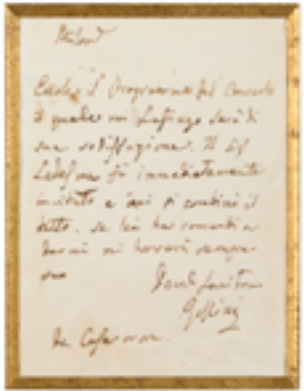 Milord
Eccole il Programma del Concerto
il quale mi lusingo sarà di
sua sodisfazione. Il Sig
fù immediatamente
invitato e qui si combinò il
tutto. se lei ha comandi a
darmi mi troverà sempre
suo
Rossini
Da Casa